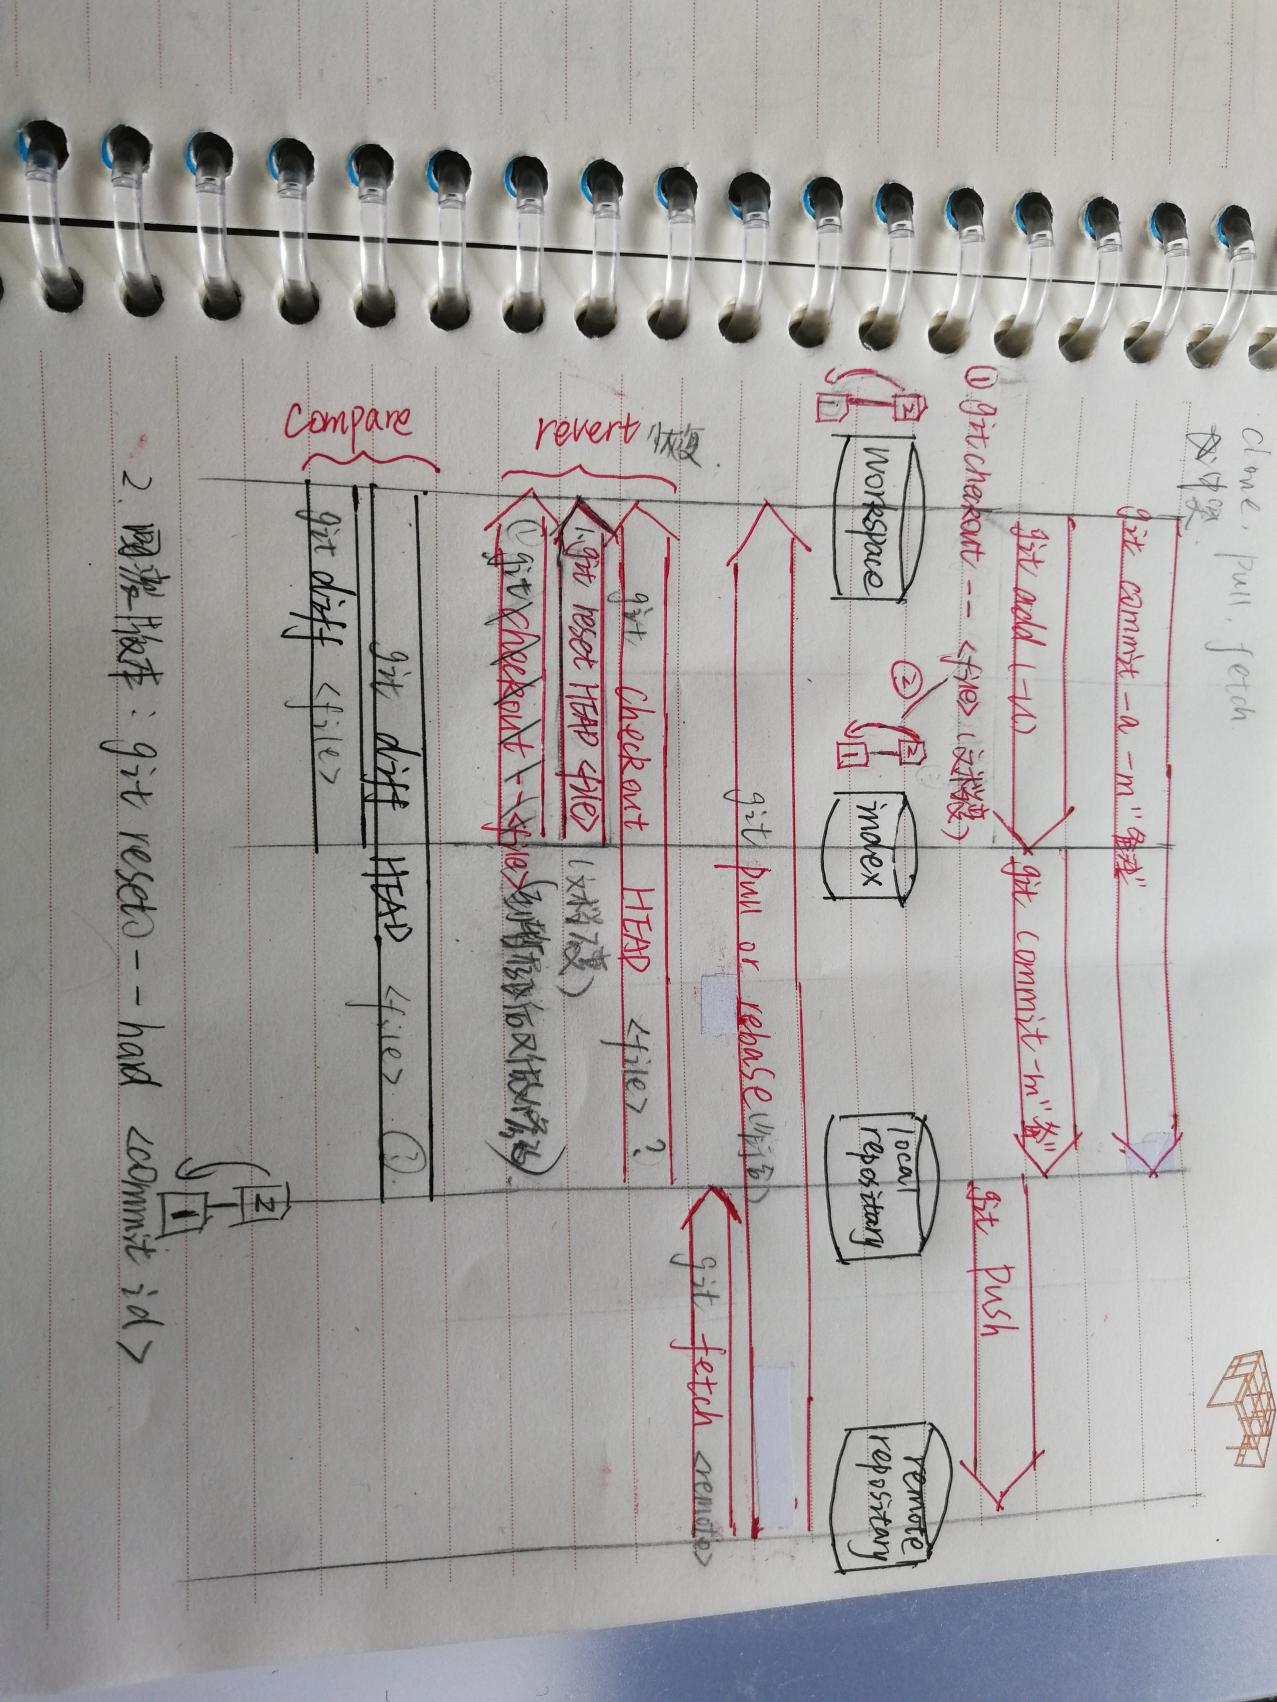 clone, pull, fetch
git commit -a -m"备注"
git add (-u)
git commit -m"备"
git push
① git checkout -- <file> (文档变)
②
2
1
2
1
workspace
index
local
reposittary
remote
reposittary
git pull or rebase
git fetch <remote>
revert 恢复
git checkout HEAD <file> ?
1.git reset HEAD <file> (文档不变)
① git checkout -- <file>
compare
git diff HEAD <file> ①
git diff <file>
2
1
2. 回滚版本: git reset -- hard <commit id>